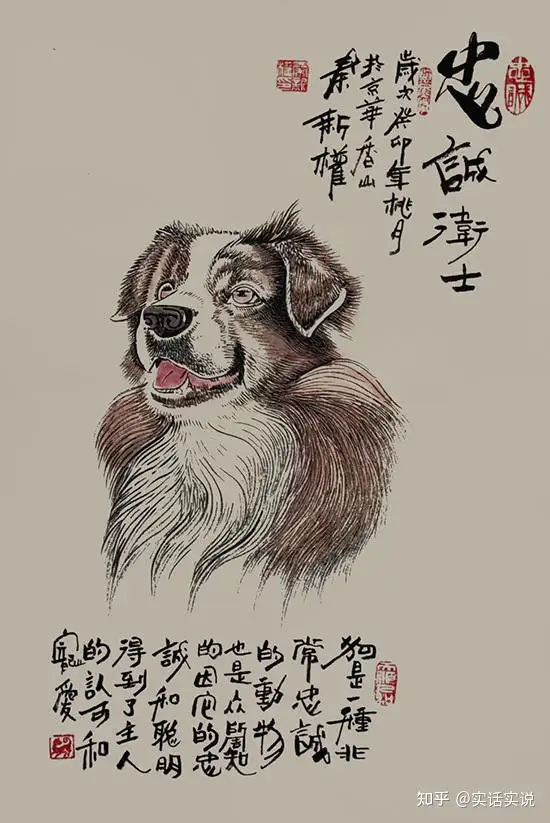 忠誠衛士
歲次癸卯年桃月
於京華香山
秦新權
狗是一種非
常忠誠
的動物
也是众知
的因它的忠
誠和聰明
得到了主人
的认可和
寵愛
知乎 @实话实说